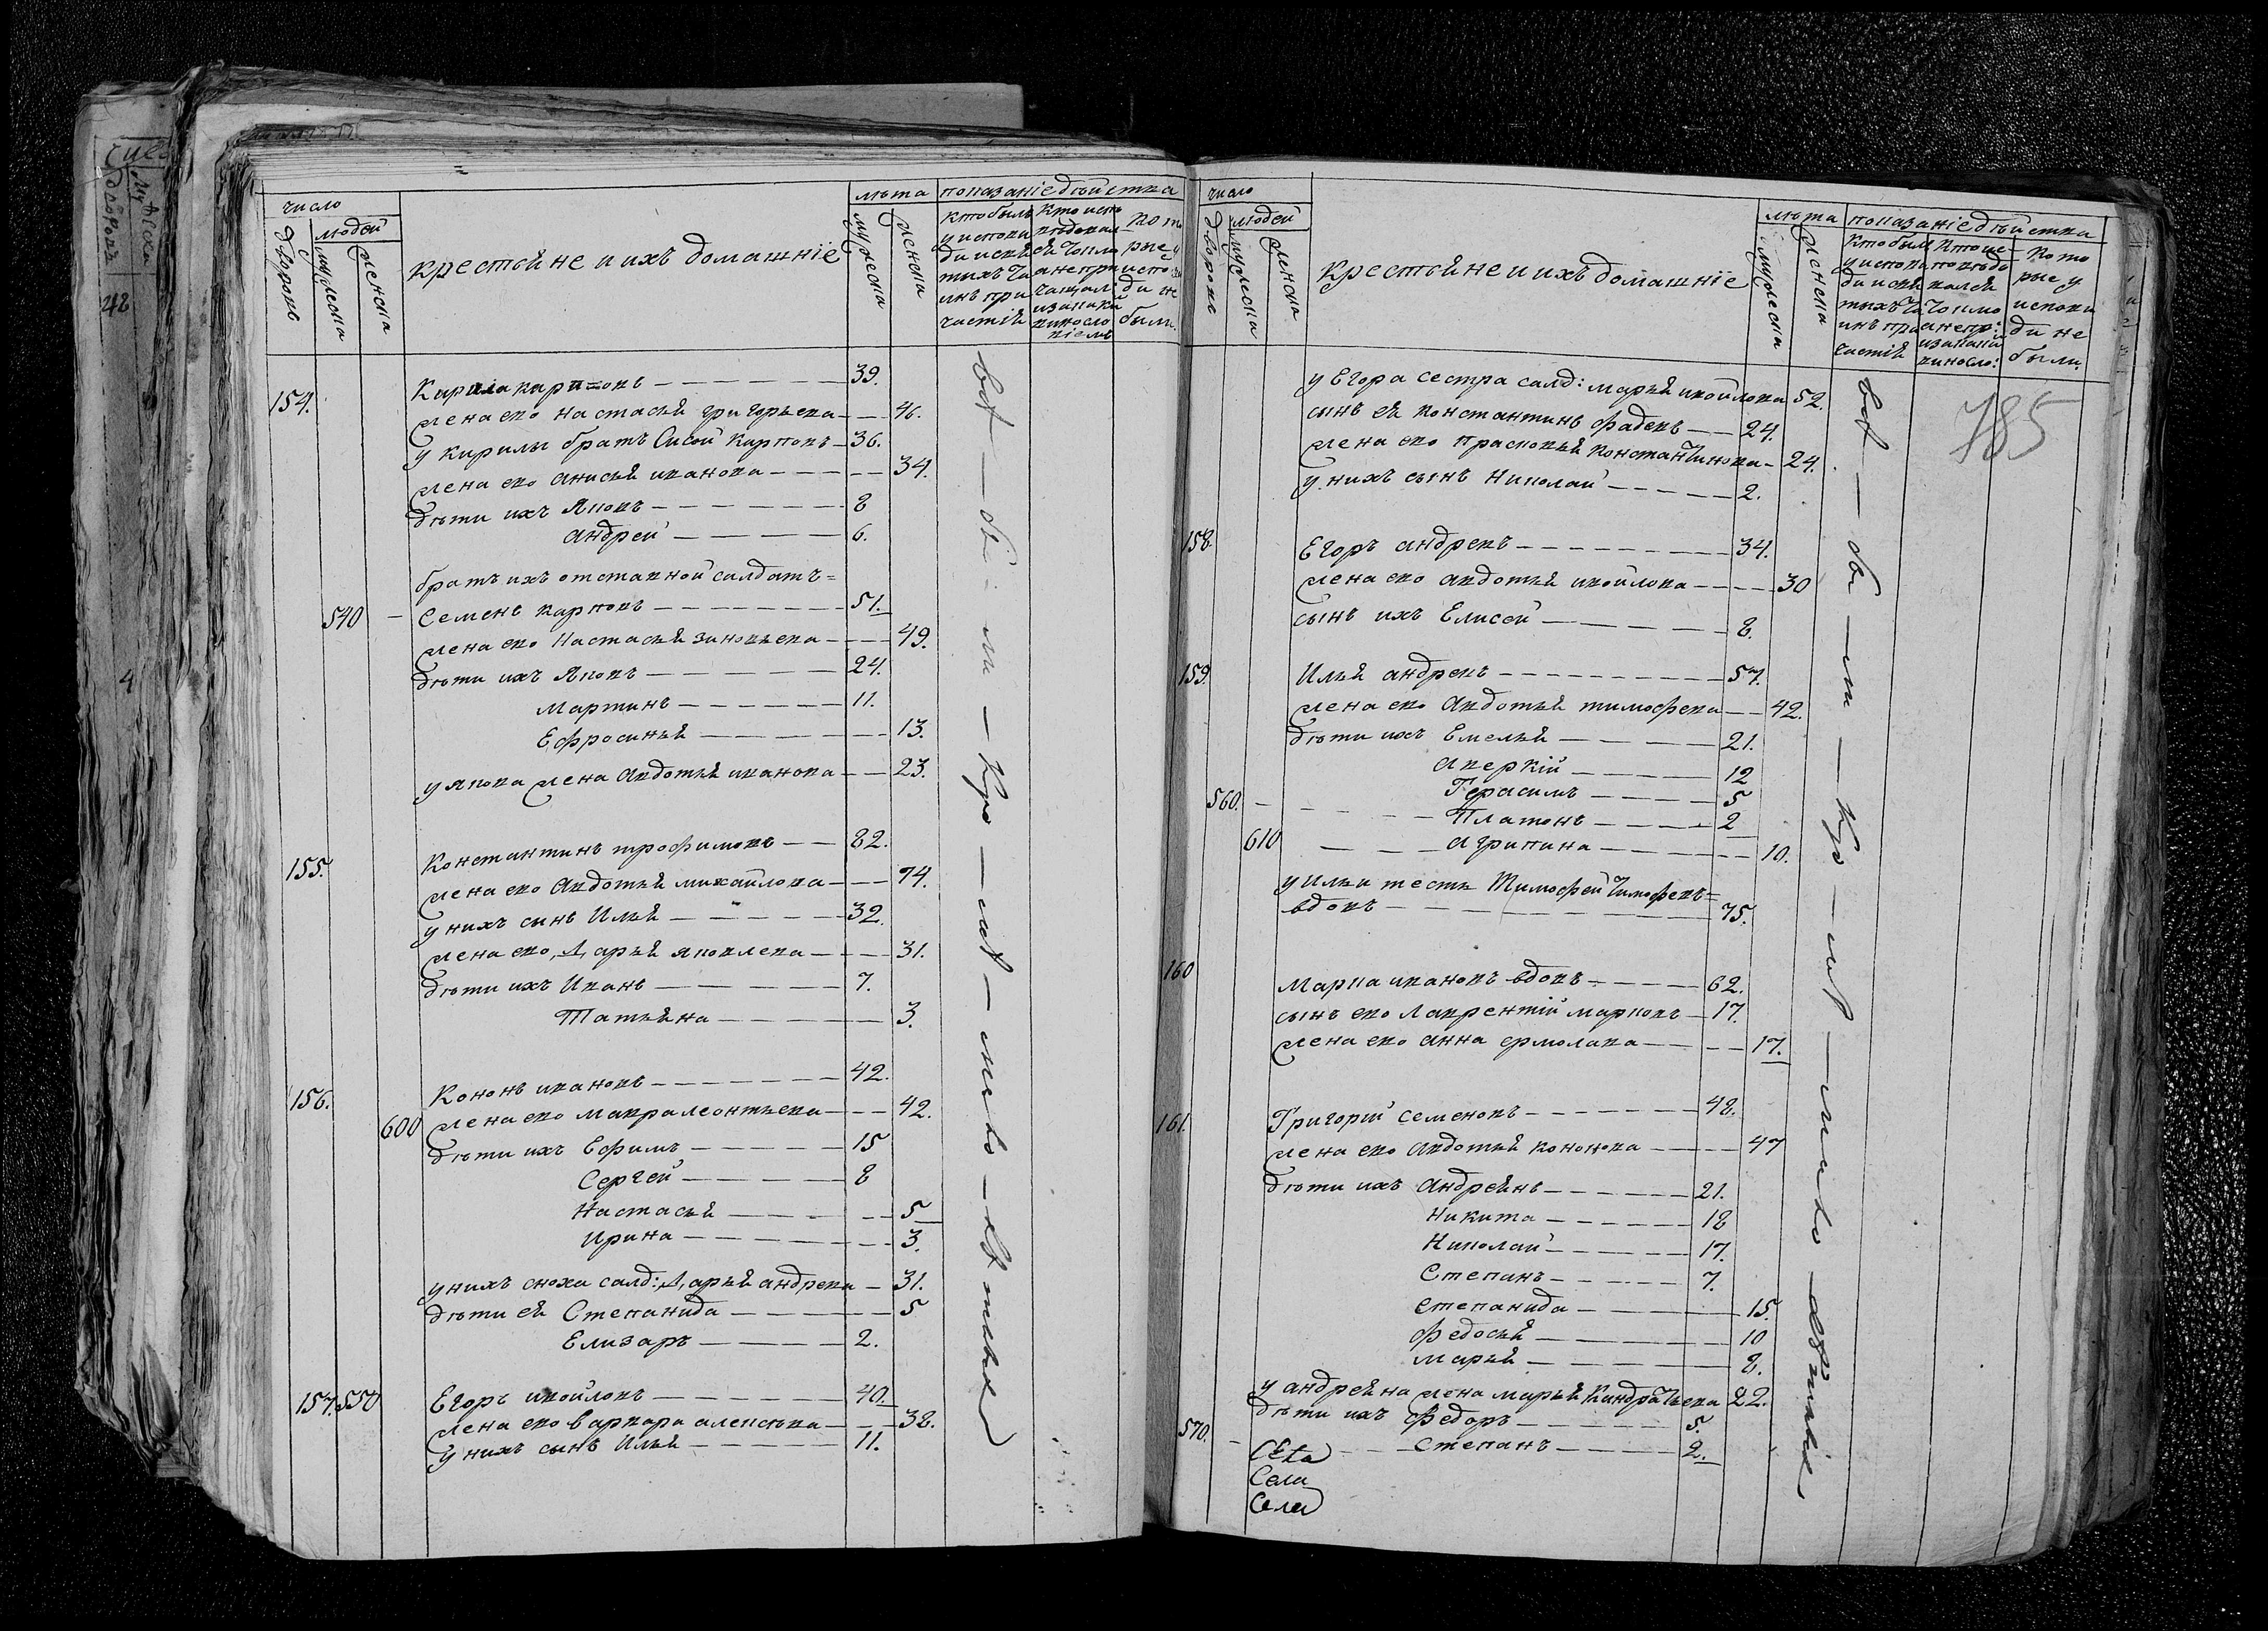 число
людей
дворовъ
мужеска
женска
крестьяне и ихъ домашніе
лѣта
мужеска
женска
показаніе дѣйства
кто былъ
у испове
ди и свя
тыхъ та
инъ при
частія
кто испо
ведовал
ся токмо
а не при
чащал:
ся
кото
рые у
испо
ди не
были.
154. Кирила карповъ — 39.
жена ево настасья григорьева — 46.
у кирилы братъ Сисой карповъ — 36.
жена ево анисья иванова — 34.
дѣти ихъ Яковъ — 8
андрей — 6.
братъ ихъ отставной салдатъ =
540 — Семенъ карповъ — 51.
жена ево Настасья зиновьева — 49.
дѣти ихъ Яковъ — 24.
Мартинъ — 11.
Ефросинья — 13.
у якова жена Авдотья иванова — 23.
155. Константинъ трофимовъ — 82.
жена ево Авдотья михайлова — 74.
у нихъ сынъ Илья — 32.
жена ево Дарья яковлева — 31.
дѣти ихъ Иванъ — 7.
Татьяна — 3.
156. Кононъ ивановъ — 42.
600 жена ево мавра леонтьева — 42.
дѣти ихъ Ефимъ — 15
Сергей — 8
Настасья — 5
Ирина — 3.
у нихъ сноха салд: Дарья андрева — 31.
дѣти ея Степанида — 5
Елизаръ — 2.
157. 550 Егоръ ивойловъ — 40.
жена ево варвара алексѣва — 38.
у нихъ сынъ Илья — 11.
всѣ — бы — ли — у
число
людей
дворовъ
мужеска
женска
крестьяне и ихъ домашніе
лѣта
мужеска
женска
показаніе дѣйства
кто былъ
у испове
ди и свя
тыхъ та
инъ при
частія
кото
рые у
испове
ди не
были.
785
у Егора сестра салд: марья ивойлова 52.
сынъ ея константинъ фадевъ — 24.
жена ево прасковья константинова — 24.
у нихъ сынъ Николай — 2.
158. Егоръ андревъ — 34.
жена ево авдотья ивойлова — 30
сынъ ихъ Елисей — 8.
159. Илья андревъ — 57.
жена ево Авдотья тимофева — 42.
дѣти ихъ Емелья — 21.
Аверкій — 12
Герасимъ — 5
560. — Платонъ — 2
610 — агрипина — 10.
у ильи тесть Тимофей тимофевъ =
вдовъ — 75.
160 Марка ивановъ вдовъ — 62.
сынъ ево Лаврентій марковъ — 17.
жена ево анна ермолава — 17.
161. Григорій семеновъ — 48.
жена ево Авдотья кононова — 47
дѣти ихъ Андреянъ — 21.
Никита — 18
Николай — 17.
Степанъ — 7.
степанида — 15.
федосья — 10
марья — 8.
у андреяна жена марья Кандратьева 22.
дѣти ихъ Федоръ — 5.
570. — Степанъ — 2.
Села
Села
Села